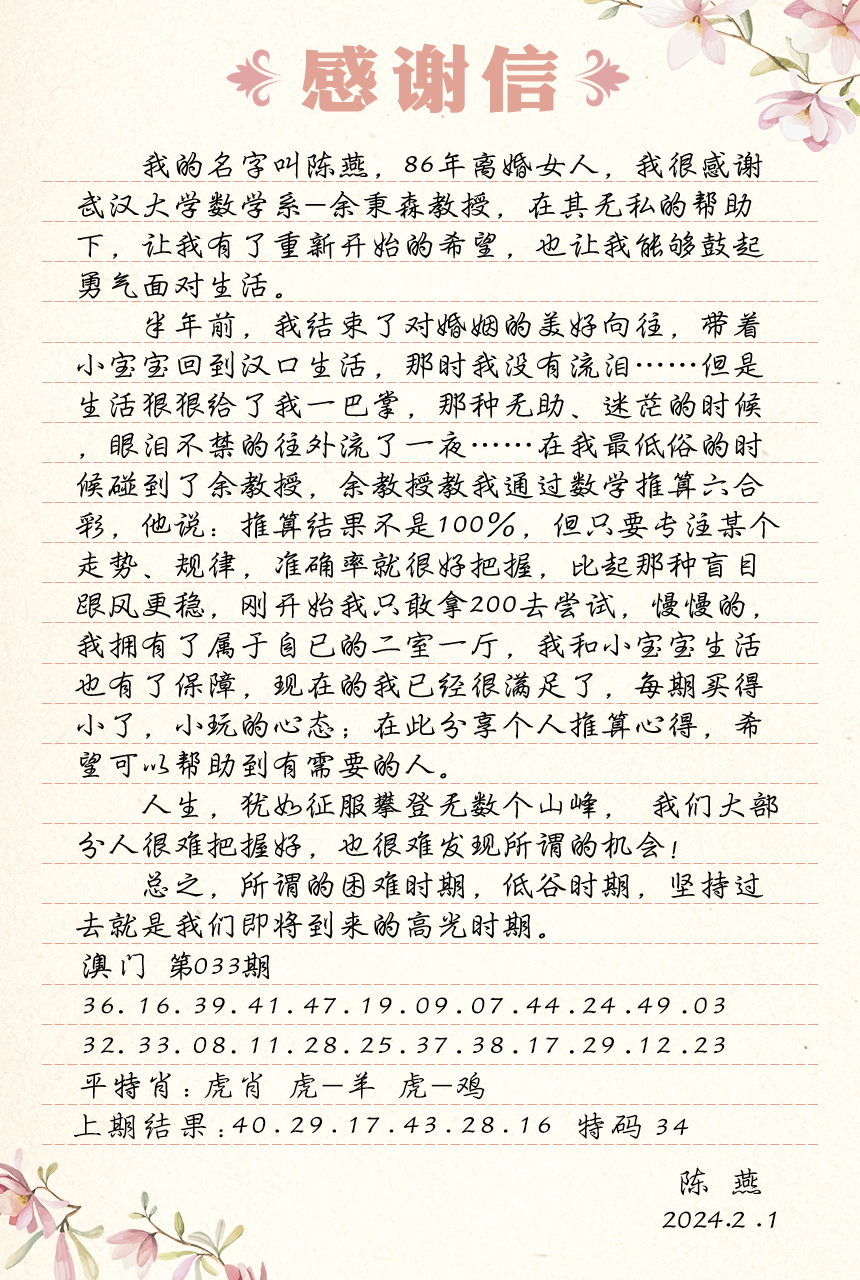 感谢信
我的名字叫陈燕，86年离婚女人，我很感谢
武汉大学数学系—余秉森教授，在其无私的帮助
下，让我有了重新开始的希望，也让我能够鼓起
勇气面对生活。
半年前，我结束了对婚姻的美好向往，带着
小宝宝回到汉口生活，那时我没有流泪……但是
生活狠狠给了我一巴掌，那种无助、迷茫的时候
，眼泪不禁的往外流了一夜……在我最低俗的时
候碰到了余教授，余教授教我通过数学推算六合
彩，他说：推算结果不是100%，但只要专注某个
走势、规律，准确率就很好把握，比起那种盲目
跟风更稳，刚开始我只敢拿200去尝试，慢慢的，
我拥有了属于自已的二室一厅，我和小宝宝生活
也有了保障，现在的我已经很满足了，每期买得
小了，小玩的心态；在此分享个人推算心得，希
望可以帮助到有需要的人。
人生，犹如征服攀登无数个山峰， 我们大部
分人很难把握好，也很难发现所谓的机会！
总之，所谓的困难时期，低谷时期，坚持过
去就是我们即将到来的高光时期。
澳门 第033期
36.16.39.41.47.19.09.07.44.24.49.03
32.33.08.11.28.25.37.38.17.29.12.23
平特肖：虎肖 虎—羊 虎—鸡
上期结果：40.29.17.43.28.16 特码 34
陈 燕
2024.2.1